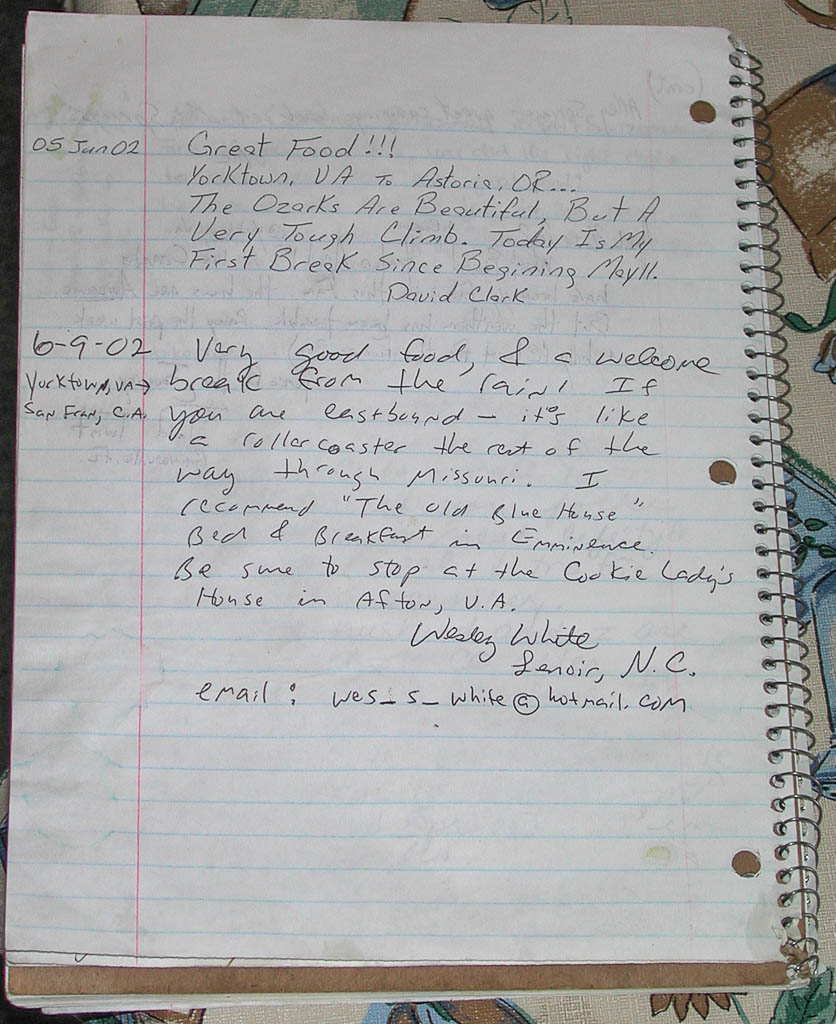 05 Jun 02 Great Food!!!
Yorktown, VA To Astoria, OR...
The Ozarks Are Beautiful, But A
Very Tough Climb. Today Is My
First Break Since Begining May 11.
David Clark
6-9-02 Very good food, & a welcome
Yorktown, VA → break from the rain! If
San Fran, C.A. you are eastbound - it's like
a rollar coaster the rest of the
way through Missouri. I
recommend "The Old Blue House"
Bed & Breakfast in Emminence.
Be sure to stop at the Cookie Lady's
House in Afton, V.A.
Wesley White
Lenoir, N.C.
email: wes_s_white@hotmail.com